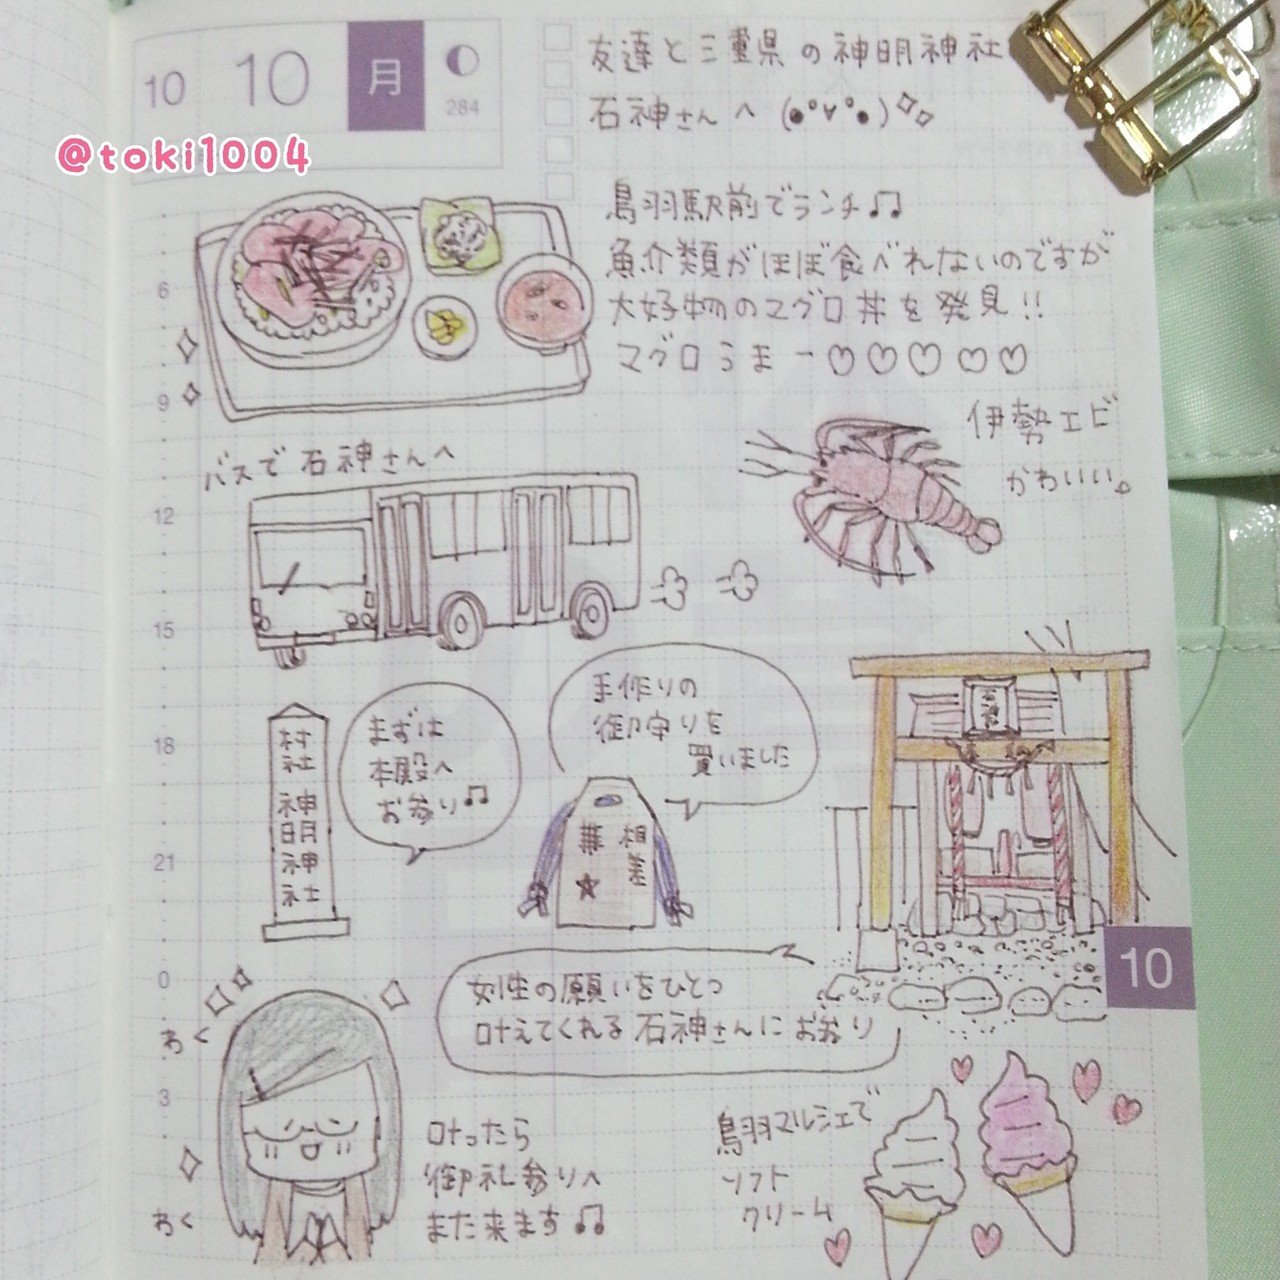 10 10 月
284
@toki1004
友達と三重県の神明神社
石神さんへ (●°v°●)
鳥羽駅前でランチ♫
魚介類がほぼ食べれないのですが
大好物のマグロ丼を発見!!
マグロうまー♡♡♡♡♡
伊勢エビ
かわいい。
バスで石神さんへ
6
9
12
15
18
21
0
3
村社 神明神社
まずは
本殿へ
お参り♫
手作りの
御守りを
買いました
相差
女性の願いをひとつ
叶えてくれる石神さんにお参り
10
わく
わく
叶ったら
御礼参りへ
また来ます♫
鳥羽マルシェで
ソフト
クリーム